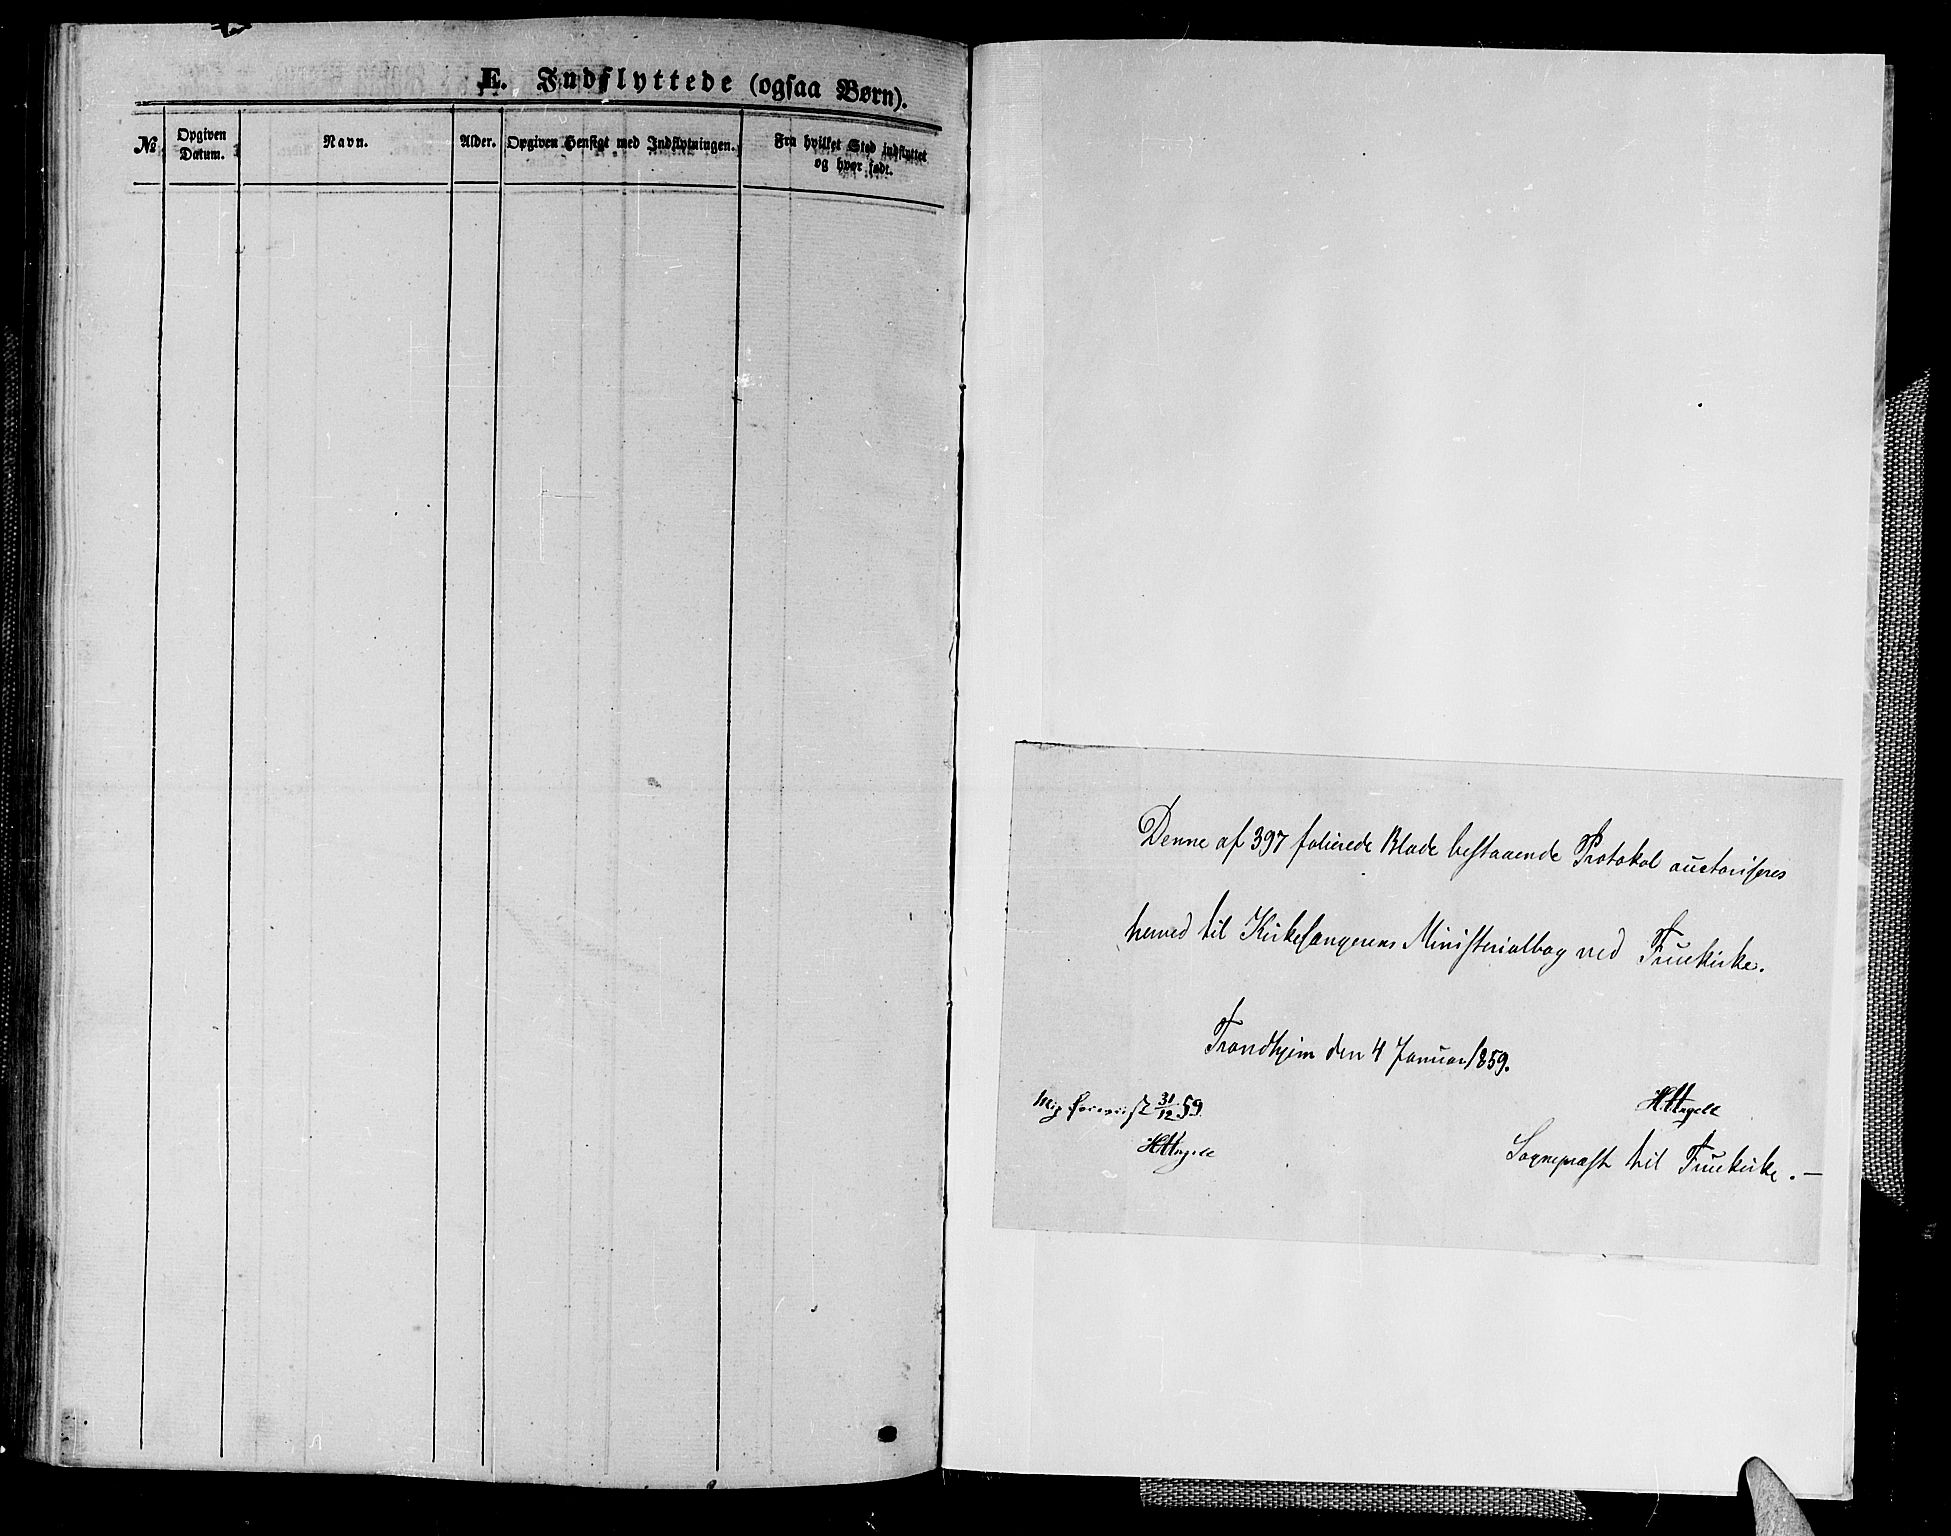 E. Indflyttede (ogsaa Børn).
№ Opgiven Datum. Navn. Alder. Opgiven Hensigt med Indflytningen. Fra hvilket Sted indflyttet og hvor født.
Denne af 397 folierede Blade bestaaende Protokol auctoriseres
herved til Kirkesangerens Ministerialbog ved Fruekirke.
Trondhjem den 4 Januar 1859.
H Angell
Sognepræst til Fruekirke. –
31/12 59.
H Angell